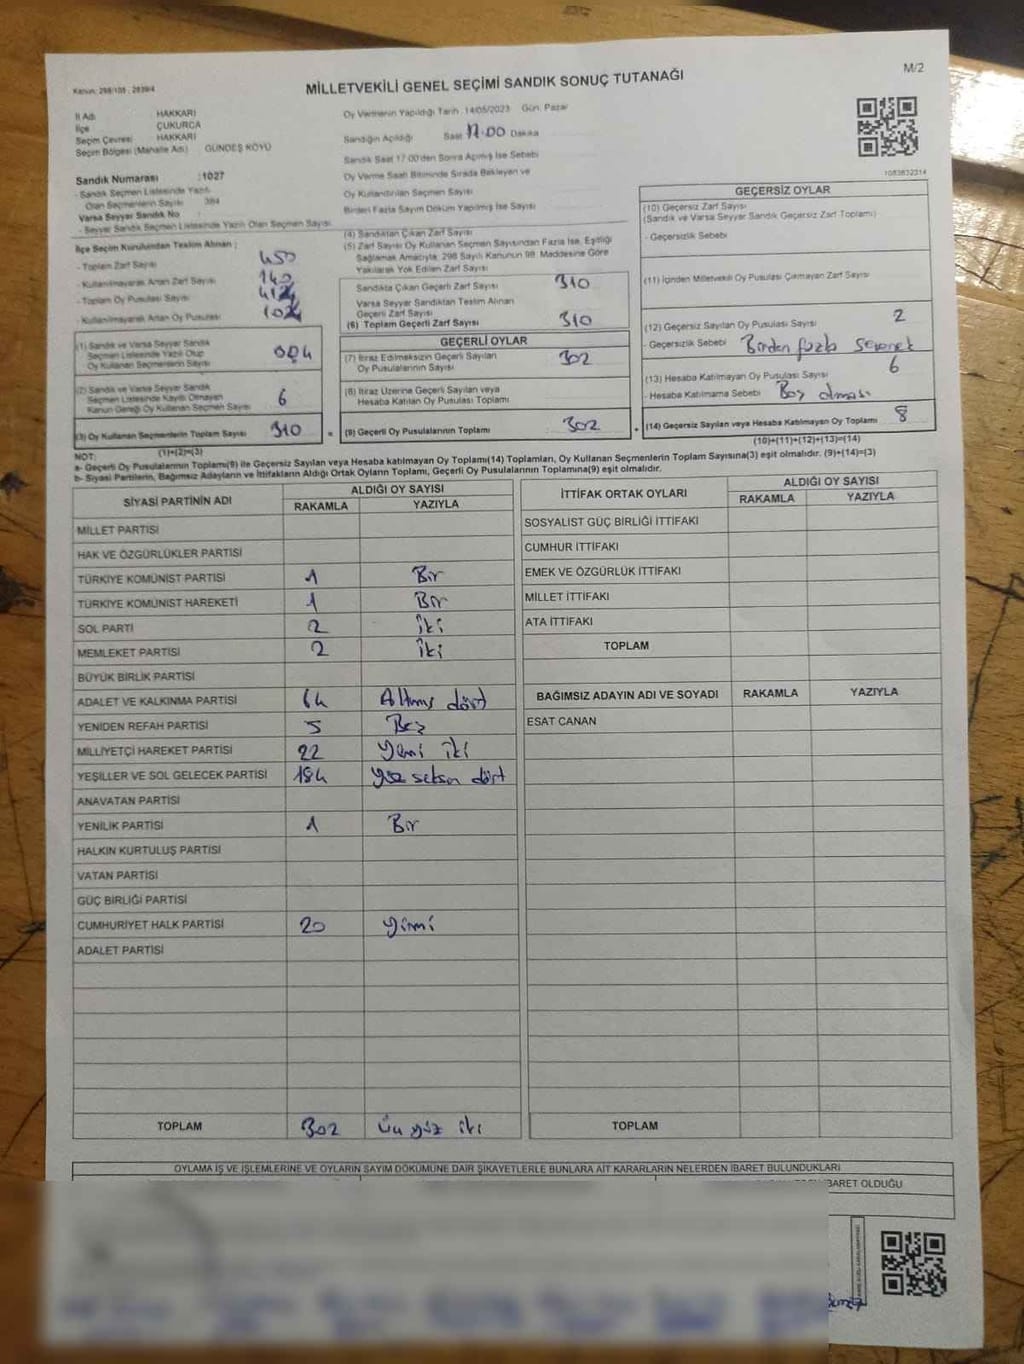 Kanun: 298/105 , 2839/4
MİLLETVEKİLİ GENEL SEÇİMİ SANDIK SONUÇ TUTANAĞI
M/2
İl Adı HAKKARİ
İlçe ÇUKURCA
Seçim Çevresi HAKKARİ
Seçim Bölgesi (Mahalle Adı) GÜNDEŞ KÖYÜ
Sandık Numarası : 1027
- Sandık Seçmen Listesinde Yazılı
Olan Seçmenlerin Sayısı 394
Varsa Seyyar Sandık No
- Seyyar Sandık Seçmen Listesinde Yazılı Olan Seçmen Sayısı
Oy Vermenin Yapıldığı Tarih 14/05/2023 Gün: Pazar
Sandığın Açıldığı Saat 17.00 Dakika
Sandık Saat 17.00'den Sonra Açılmış İse Sebebi
Oy Verme Saati Bitiminde Sırada Bekleyen ve
Oy Kullandırılan Seçmen Sayısı
Birden Fazla Sayım Döküm Yapılmış İse Sayısı
1083832314
İlçe Seçim Kurulundan Teslim Alınan ;
- Toplam Zarf Sayısı 450
- Kullanılmayarak Artan Zarf Sayısı 140
- Toplam Oy Pusulası Sayısı
- Kullanılmayarak Artan Oy Pusulası
(1) Sandık ve Varsa Seyyar Sandık
Seçmen Listesinde Yazılı Olup
Oy Kullanan Seçmenlerin Sayısı 304
(2) Sandık ve Varsa Seyyar Sandık
Seçmen Listesinde Kayıtlı Olmayan
Kanun Gereği Oy Kullanan Seçmen Sayısı 6
(3) Oy Kullanan Seçmenlerin Toplam Sayısı 310
(1)+(2)=(3)
(4) Sandıktan Çıkan Zarf Sayısı
(5) Zarf Sayısı Oy Kullanan Seçmen Sayısından Fazla İse, Eşitliği
Sağlamak Amacıyla, 298 Sayılı Kanunun 98. Maddesine Göre
Yakılarak Yok Edilen Zarf Sayısı
Sandıkta Çıkan Geçerli Zarf Sayısı 310
Varsa Seyyar Sandıktan Teslim Alınan
Geçerli Zarf Sayısı
(6) Toplam Geçerli Zarf Sayısı 310
GEÇERLİ OYLAR
(7) İtiraz Edilmeksizin Geçerli Sayılan
Oy Pusulalarının Sayısı 302
(8) İtiraz Üzerine Geçerli Sayılan veya
Hesaba Katılan Oy Pusulası Toplamı
(9) Geçerli Oy Pusulalarının Toplamı 302
GEÇERSİZ OYLAR
(10) Geçersiz Zarf Sayısı
(Sandık ve Varsa Seyyar Sandık Geçersiz Zarf Toplamı)
- Geçersizlik Sebebi
(11) İçinden Milletvekili Oy Pusulası Çıkmayan Zarf Sayısı
(12) Geçersiz Sayılan Oy Pusulası Sayısı 2
- Geçersizlik Sebebi Birden fazla seçenek
(13) Hesaba Katılmayan Oy Pusulası Sayısı 6
- Hesaba Katılmama Sebebi Boş olması
(14) Geçersiz Sayılan veya Hesaba Katılmayan Oy Toplamı 8
(10)+(11)+(12)+(13)=(14)
NOT:
a- Geçerli Oy Pusulalarının Toplamı(9) ile Geçersiz Sayılan veya Hesaba katılmayan Oy Toplamı(14) Toplamları, Oy Kullanan Seçmenlerin Toplam Sayısına(3) eşit olmalıdır. (9)+(14)=(3)
b- Siyasi Partilerin, Bağımsız Adayların ve İttifakların Aldığı Ortak Oyların Toplamı, Geçerli Oy Pusulalarının Toplamına(9) eşit olmalıdır.
SİYASİ PARTİNİN ADI ALDIĞI OY SAYISI
RAKAMLA YAZIYLA
MİLLET PARTİSİ
HAK VE ÖZGÜRLÜKLER PARTİSİ
TÜRKİYE KOMÜNİST PARTİSİ 1 Bir
TÜRKİYE KOMÜNİST HAREKETİ 1 Bir
SOL PARTİ 2 İki
MEMLEKET PARTİSİ 2 İki
BÜYÜK BİRLİK PARTİSİ
ADALET VE KALKINMA PARTİSİ 64 Altmış dört
YENİDEN REFAH PARTİSİ 5 Beş
MİLLİYETÇİ HAREKET PARTİSİ 22 Yirmi iki
YEŞİLLER VE SOL GELECEK PARTİSİ 184 Yüz seksen dört
ANAVATAN PARTİSİ
YENİLİK PARTİSİ 1 Bir
HALKIN KURTULUŞ PARTİSİ
VATAN PARTİSİ
GÜÇ BİRLİĞİ PARTİSİ
CUMHURİYET HALK PARTİSİ 20 Yirmi
ADALET PARTİSİ
TOPLAM 302 Üç yüz iki
İTTİFAK ORTAK OYLARI ALDIĞI OY SAYISI
RAKAMLA YAZIYLA
SOSYALİST GÜÇ BİRLİĞİ İTTİFAKI
CUMHUR İTTİFAKI
EMEK VE ÖZGÜRLÜK İTTİFAKI
MİLLET İTTİFAKI
ATA İTTİFAKI
TOPLAM
BAĞIMSIZ ADAYIN ADI VE SOYADI RAKAMLA YAZIYLA
ESAT CANAN
TOPLAM
OYLAMA İŞ VE İŞLEMLERİNE VE OYLARIN SAYIM DÖKÜMÜNE DAİR ŞİKAYETLERLE BUNLARA AİT KARARLARIN NELERDEN İBARET BULUNDUKLARI
BARET OLDUĞU